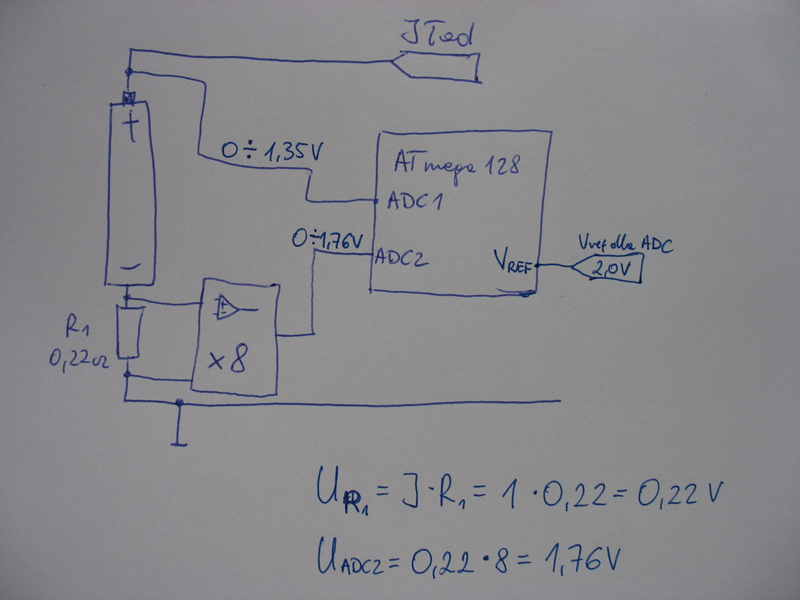 JŁad
+
0÷1,35V
ATmega 128
ADC1
0÷1,76V
ADC2
VREF
Vref dla ADC
2,0V
-
R1
0,22Ω
x8
UR1 = J·R1 = 1·0,22 = 0,22V
UADC2 = 0,22·8 = 1,76V